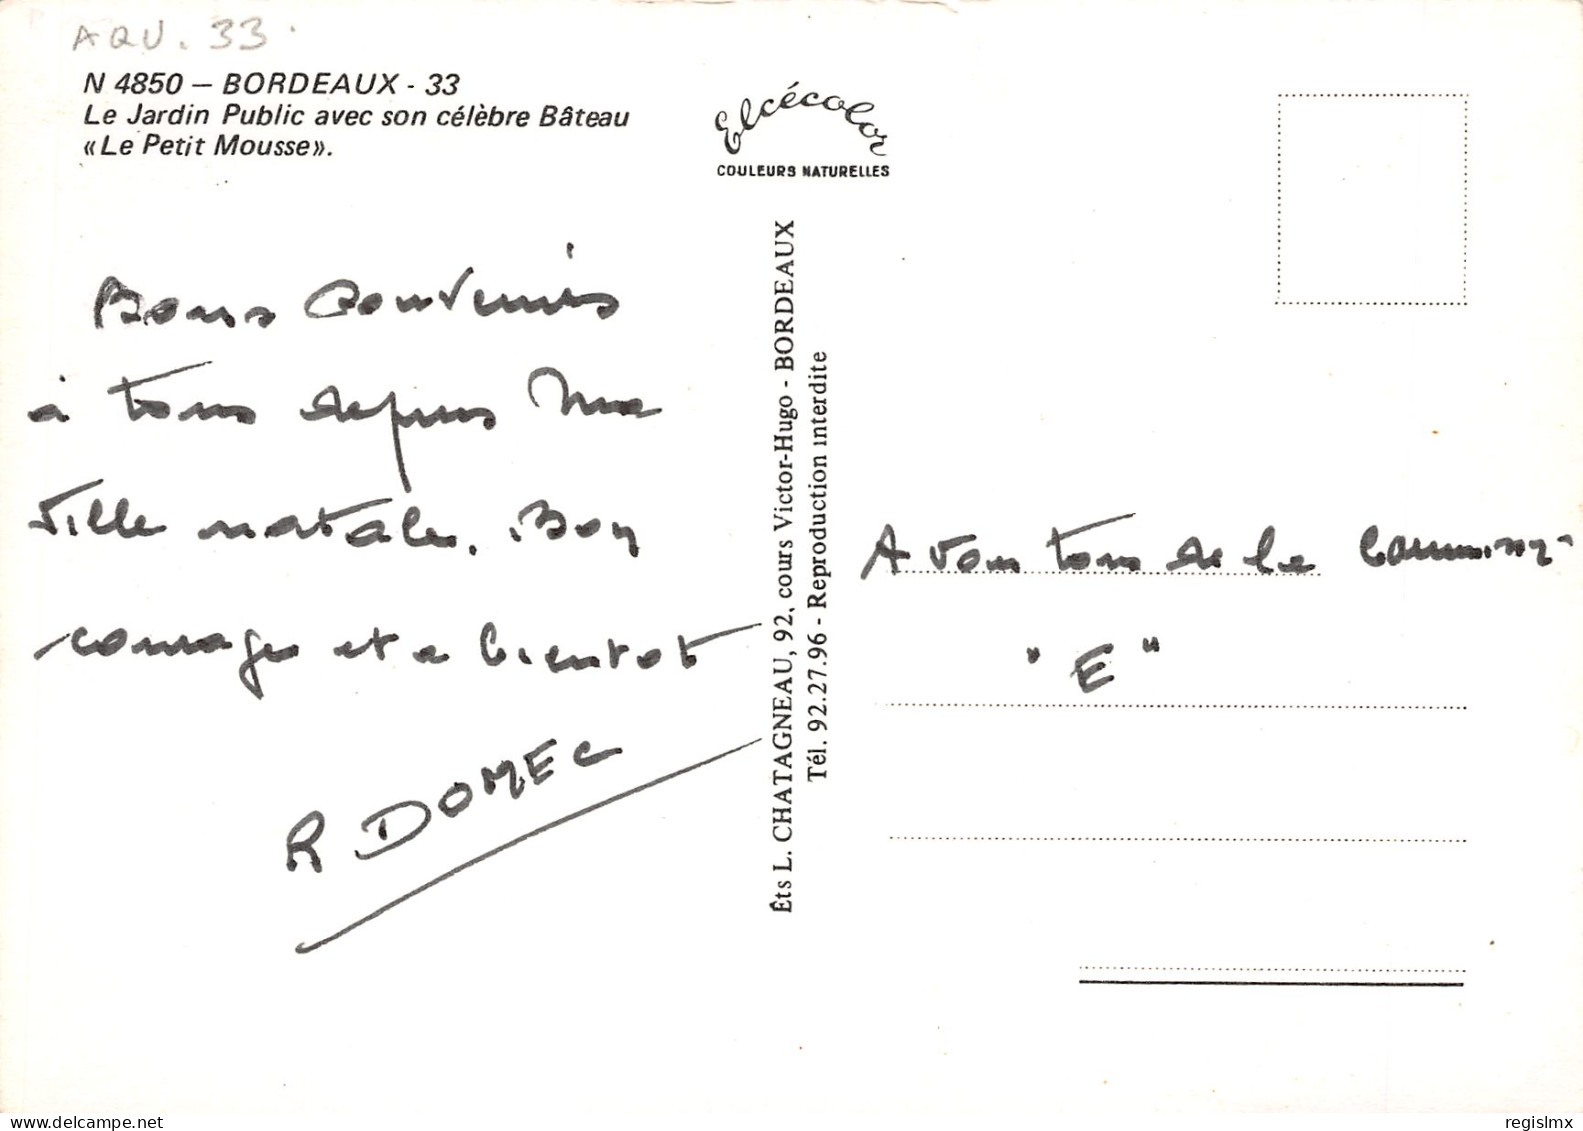 AQU. 33.
N 4850 – BORDEAUX - 33
Le Jardin Public avec son célèbre Bâteau
«Le Petit Mousse».
Elcécolor
COULEURS NATURELLES
Bons souvenirs
à tous depuis ma
ville natale. Bon
courage et a bientot
R DOMEC
Éts L. CHATAGNEAU, 92, cours Victor-Hugo - BORDEAUX
Tél. 92.27.96 - Reproduction interdite
A vous tous de la
"E"
www.delcampe.net
regislmx